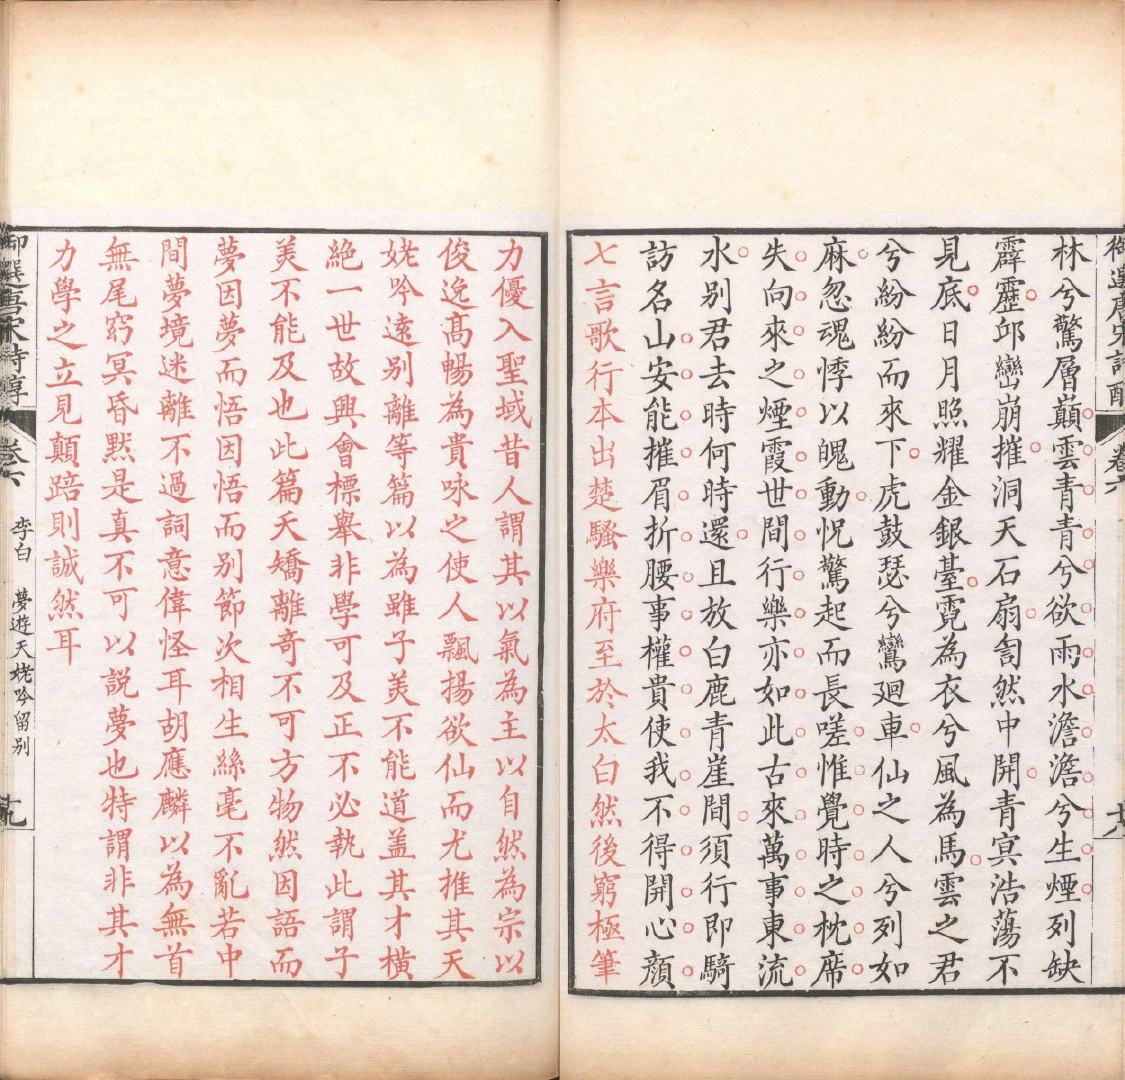 御選唐宋詩醇 卷六 十八
林兮驚層巔雲青青兮欲雨水澹澹兮生煙列缺
霹靂邱巒崩摧洞天石扇訇然中開青冥浩蕩不
見底日月照耀金銀臺霓為衣兮風為馬雲之君
兮紛紛而來下虎鼓瑟兮鸞迴車仙之人兮列如
麻忽魂悸以魄動怳驚起而長嗟惟覺時之枕席
失向來之煙霞世間行樂亦如此古來萬事東流
水別君去時何時還且放白鹿青崖間須行即騎
訪名山安能摧眉折腰事權貴使我不得開心顏
七言歌行本出楚騷樂府至於太白然後窮極筆
力優入聖域昔人謂其以氣為主以自然為宗以
俊逸高暢為貴咏之使人飄揚欲仙而尤推其天
姥吟遠別離等篇以為雖子美不能道盖其才橫
絕一世故興會標舉非學可及正不必執此謂子
美不能及也此篇夭矯離奇不可方物然因語而
夢因夢而悟因悟而別節次相生絲毫不亂若中
間夢境迷離不過詞意偉怪耳胡應麟以為無首
無尾窈冥昏默是真不可以説夢也特謂非其才
力學之立見顛踣則誠然耳
御選唐宋詩醇 卷六 李白 夢遊天姥吟留別 十九